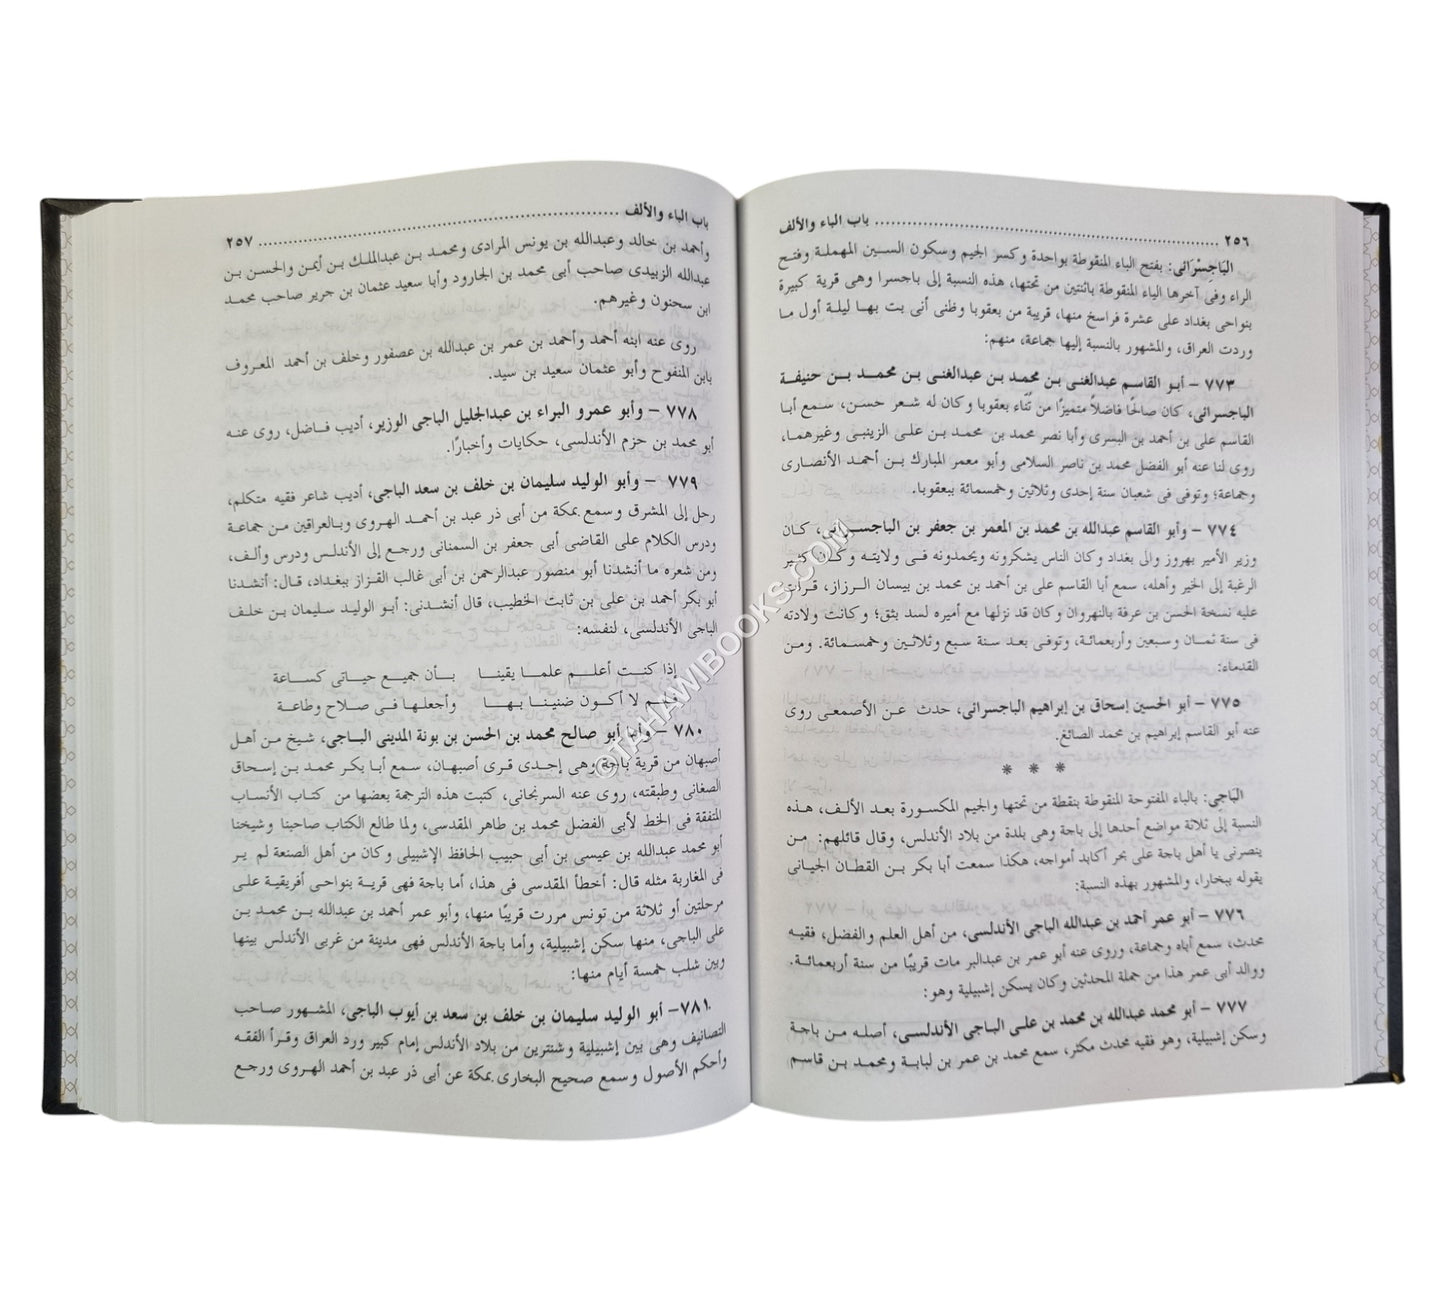 ٢٥٦ ........ باب الباء والألف
البَاجِسْرَائى: بفتح الباء المنقوطة بواحدة وكسر الجيم وسكون السين المهملة وفتح
الراء وفى آخرها الياء المنقوطة باثنتين من تحتها، هذه النسبة إلى باجسرا وهى قرية كبيرة
بنواحى بغداد على عشرة فراسخ منها، قريبة من بعقوبا وظنى أنى بت بها ليلة أول ما
وردت العراق، والمشهور بالنسبة إليها جماعة، منهم:
٧٧٣ – أبو القاسم عبدالغنى بن محمد بن عبدالغنى بن محمد بن حنيفة
الباجسرائى، كان صالحًا فاضلاً متميزًا من تُنّاء بعقوبا وكان له شعر حسن، سمع أبا
القاسم على بن أحمد بن البسرى وأبا نصر محمد بن محمد بن على الزينبى وغيرهما،
روى لنا عنه أبو الفضل محمد بن ناصر السلامى وأبو معمر المبارك بن أحمد الأنصارى
وجماعة؛ وتوفى فى شعبان سنة إحدى وثلاثين وخمسمائة ببعقوبا.
٧٧٤ – وأبو القاسم عبدالله بن محمد بن المعمر بن جعفر بن الباجسرائى، كان
وزير الأمير بهروز والى بغداد وكان الناس يشكرونه ويحمدونه فى ولايته وكان كثير
الرغبة إلى الخير وأهله، سمع أبا القاسم على بن أحمد بن محمد بن بيسان الرزاز، قرأت
عليه نسخة الحسن بن عرفة بالنهروان وكان قد نزلها مع أميره لسد بثق؛ وكانت ولادته
فى سنة ثمان وسبعين وأربعمائة، وتوفى بعد سنة سبع وثلاثين وخمسمائة. ومن
القدماء:
٧٧٥ – أبو الحسين إسحاق بن إبراهيم الباجسرائى، حدث عن الأصمعى روى
عنه أبو القاسم إبراهيم بن محمد الصائغ.
* * *
البَاجى: بالباء المفتوحة المنقوطة بنقطة من تحتها والجيم المكسورة بعد الألف، هذه
النسبة إلى ثلاثة مواضع أحدها إلى باجة وهى بلدة من بلاد الأندلس، وقال قائلهم: من
ينصرنى يا أهل باجة على بحر أكابد أمواجه، هكذا سمعت أبا بكر بن القطان الجيانى
يقوله ببخارا، والمشهور بهذه النسبة:
٧٧٦ – أبو عمر أحمد بن عبدالله الباجى الأندلسى، من أهل العلم والفضل، فقيه
محدث، سمع أباه وجماعة، وروى عنه أبو عمر بن عبدالبر مات قريبًا من سنة أربعمائة.
ووالد أبى عمر هذا من جملة المحدثين وكان يسكن إشبيلية وهو:
٧٧٧ – أبو محمد عبدالله بن محمد بن على الباجى الأندلسى، أصله من باجة
وسكن إشبيلية، وهو فقيه محدث مكثر، سمع محمد بن عمر بن لبابة ومحمد بن قاسم
باب الباء والألف ........ ٢٥٧
وأحمد بن خالد وعبدالله بن يونس المرادى ومحمد بن عبدالملك بن أيمن والحسن بن
عبدالله الزبيدى صاحب أبى محمد بن الجارود وأبا سعيد عثمان بن جرير صاحب محمد
ابن سحنون وغيرهم.
روى عنه ابنه أحمد وأحمد بن عمر بن عبدالله بن عصفور وخلف بن أحمد المعروف
بابن المنفوح وأبو عثمان سعيد بن سيد.
٧٧٨ – وأبو عمرو البراء بن عبدالجليل الباجى الوزير، أديب فاضل، روى عنه
أبو محمد بن حزم الأندلسى، حكايات وأخبارًا.
٧٧٩ – وأبو الوليد سليمان بن خلف بن سعد الباجى، أديب شاعر فقيه متكلم،
رحل إلى المشرق وسمع بمكة من أبى ذر عبد بن أحمد الهروى وبالعراقين من جماعة
ودرس الكلام على القاضى أبى جعفر بن السمنانى ورجع إلى الأندلس ودرس وألف،
ومن شعره ما أنشدنا أبو منصور عبدالرحمن بن أبى غالب القزاز ببغداد، قال: أنشدنا
أبو بكر أحمد بن على بن ثابت الخطيب، قال أنشدنى: أبو الوليد سليمان بن خلف
الباجى الأندلسى، لنفسه:
إذا كنت أعلم علما يقينا بأن جميع حياتى كساعة
لا أكون ضنينا بها وأجعلها فى صلاح وطاعة
٧٨٠ – وأما أبو صالح محمد بن الحسن بن بونة المدينى الباجى، شيخ من أهل
أصبهان من قرية باجة وهى إحدى قرى أصبهان، سمع أبا بكر محمد بن إسحاق
الصغانى وطبقته، روى عنه السرنجانى، كتبت هذه الترجمة بعضها من كتاب الأنساب
المتفقة فى الخط لأبى الفضل محمد بن طاهر المقدسى، ولما طالع الكتاب صاحبنا وشيخنا
أبو محمد عبدالله بن عيسى بن أبى حبيب الحافظ الإشبيلى وكان من أهل الصنعة لم ير
فى المغاربة مثله قال: أخطأ المقدسى فى هذا، أما باجة فهى قرية بنواحى أفريقية على
مرحلتين أو ثلاثة من تونس مررت قريبًا منها، وأبو عمر أحمد بن عبدالله بن محمد بن
على الباجى، منها سكن إشبيلية، وأما باجة الأندلس فهى مدينة من غربى الأندلس بينها
وبين شلب خمسة أيام منها:
٧٨١ – أبو الوليد سليمان بن خلف بن سعد بن أيوب الباجى، المشهور صاحب
التصانيف وهى بين إشبيلية وشنترين من بلاد الأندلس إمام كبير ورد العراق وقرأ الفقه
وأحكم الأصول وسمع صحيح البخارى بمكة عن أبى ذر عبد بن أحمد الهروى ورجع
©TAHAWIBOOKS.COM